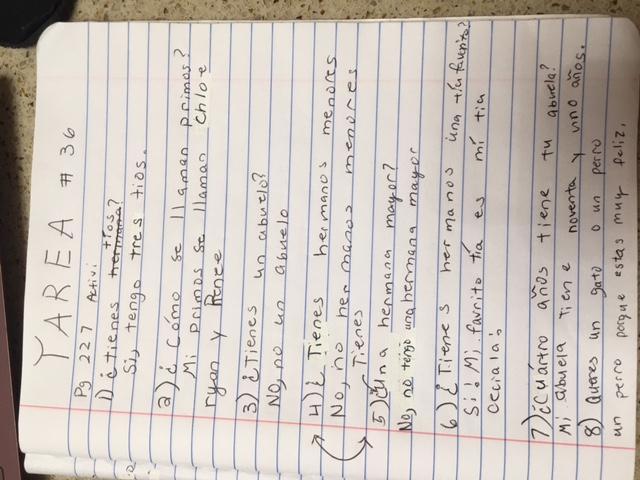 TAREA # 36
Pg 227 Activi.
1) ¿tienes hermana? tíos
Si, tengo tres tios.
2) ¿Cómo se llaman primos?
Mi primos se llaman Chloe
ryan y Renee
3) ¿Tienes un abuelo?
No, no un abuelo
4) ¿ Tienes hermanos menores
No, no hermanos menores
Tienes
5) ¿una hermana mayor?
No, no tengo una hermana mayor
6) ¿Tienes hermanos una tía faurito?
Si! Mi favrito tía es mí tia
Occiala!
7) ¿Cuártro años tiene tu abuela?
Mi abuela tiene noventa y uno años.
8) Queres un gato o un perro
un perro porque estas muy feliz.